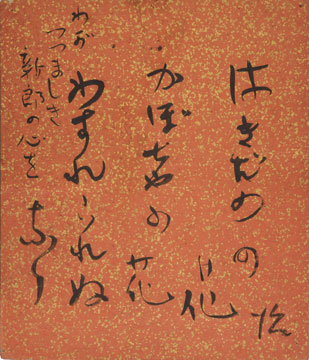 はきだめの
花
かぼちやの
花
わすれられぬ
なり
わが
つつましき
新郎の心を
治